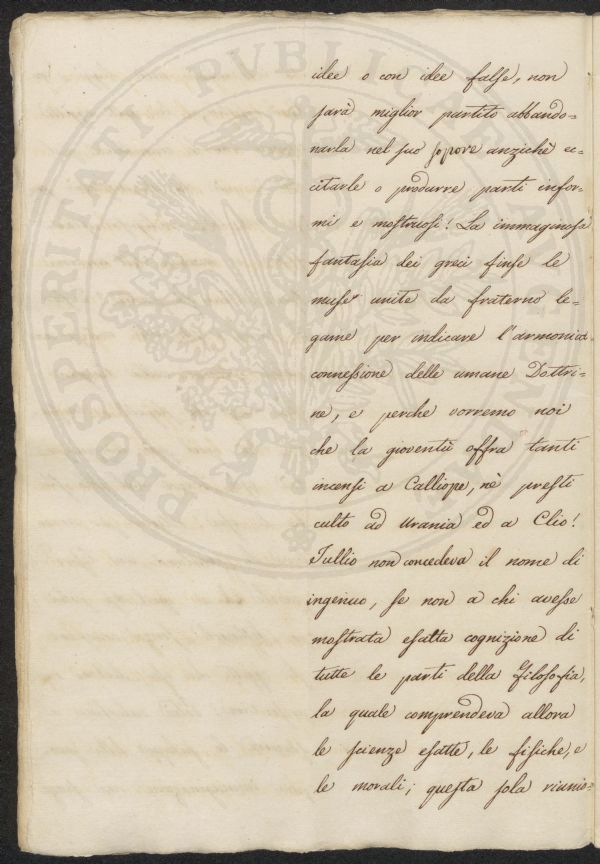 idee o con idee false, non
sarà miglior partito abbando=
narla nel suo sopore anzichè ec=
citarle o produrre parti infor=
mi e mostruosi! La immaginosa
fantasia dei greci finse le
muse unite da fraterno le=
game per indicare l'armonica
connessione delle umane Dottri=
ne, e perche vorremo noi
che la gioventù offra tanti
incensi a Calliope, nè presti
culto ad Urania ed a Clio!
Tullio non concedeva il nome di
ingenuo, se non a chi avesse
mostrata esatta cognizione di
tutte le parti della filosofia,
la quale comprendeva allora
le scienze esatte, le fisiche, e
le morali; questa sola riunio=
PROSPERITATI PVBLICAE